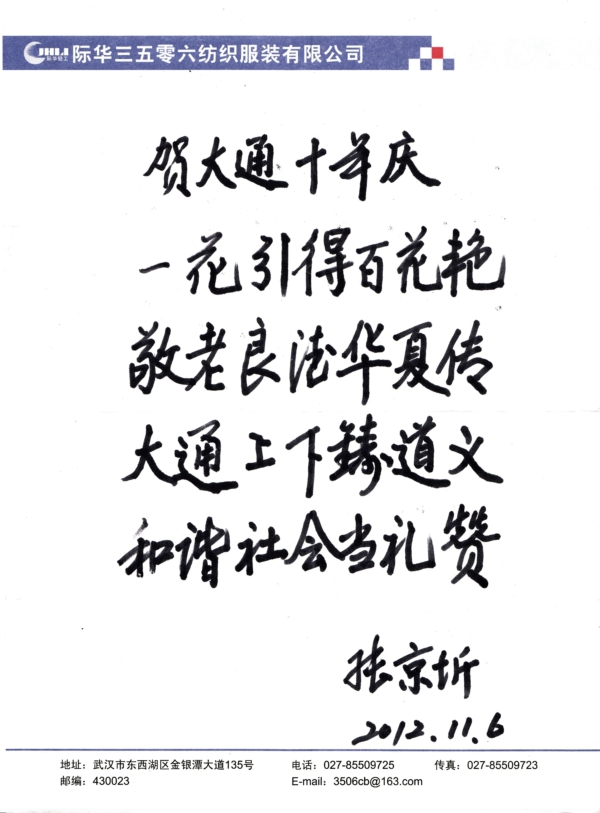 JHLI 际华轻工 际华三五零六纺织服装有限公司
贺大通十年庆
一花引得百花艳
敬老良德华夏传
大通上下鑄道义
和谐社会当礼赞
张京圻
2012.11.6
地址：武汉市东西湖区金银潭大道135号 电话：027-85509725 传真：027-85509723
邮编：430023 E-mail：3506cb@163.com